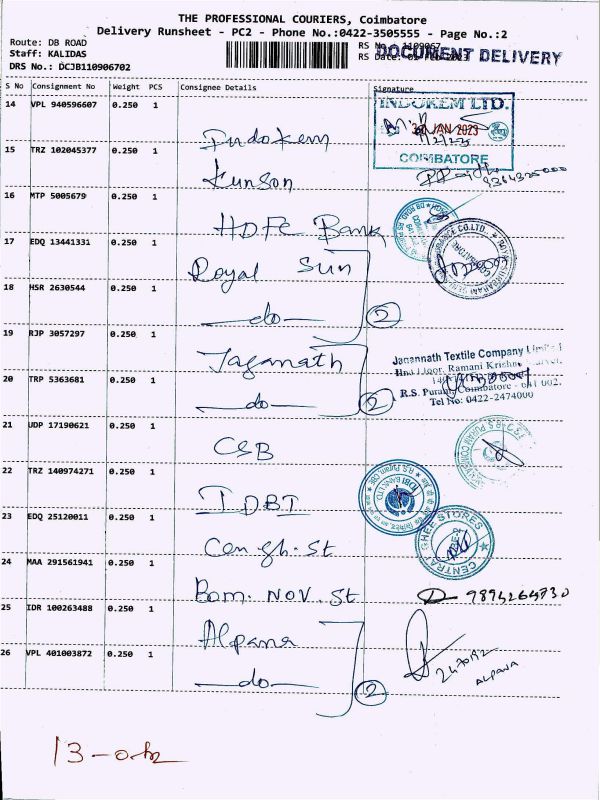 THE PROFESSIONAL COURIERS, Coimbatore
Delivery Runsheet - PC2 - Phone No.:0422-3505555 - Page No.:2
Route: DB ROAD
Staff: KALIDAS
DRS No.: DCJB110906702
DOCUMENT DELIVERY
S No Consignment No Weight PCS Consignee Details Signature
14 VPL 940596607 0.250 1 Indokem
INDOKEM LTD.
JAN 2023
COIMBATORE
15 TRZ 102045377 0.250 1 Kunson
16 MTP 5005679 0.250 1 HDFC Bank
17 EDQ 13441331 0.250 1 Royal Sun
18 HSR 2630544 0.250 1 do 2
19 RJP 3057297 0.250 1 Jaganath
Janannath Textile Company Limited
Floor, Ramani Krishna
R.S. Puram, Coimbatore - 641 002.
Tel No: 0422-2474000
20 TRP 5363681 0.250 1 do 2
21 UDP 17190621 0.250 1 CSB
22 TRZ 140974271 0.250 1 IDBI
IDBI BANK LTD
23 EDQ 25120011 0.250 1 Cen gh. St
CENTRAL GHEE STORES
24 MAA 291561941 0.250 1 Bom. Nov. St
25 IDR 100263488 0.250 1 Alpana
26 VPL 401003872 0.250 1 do 2
ALPANA